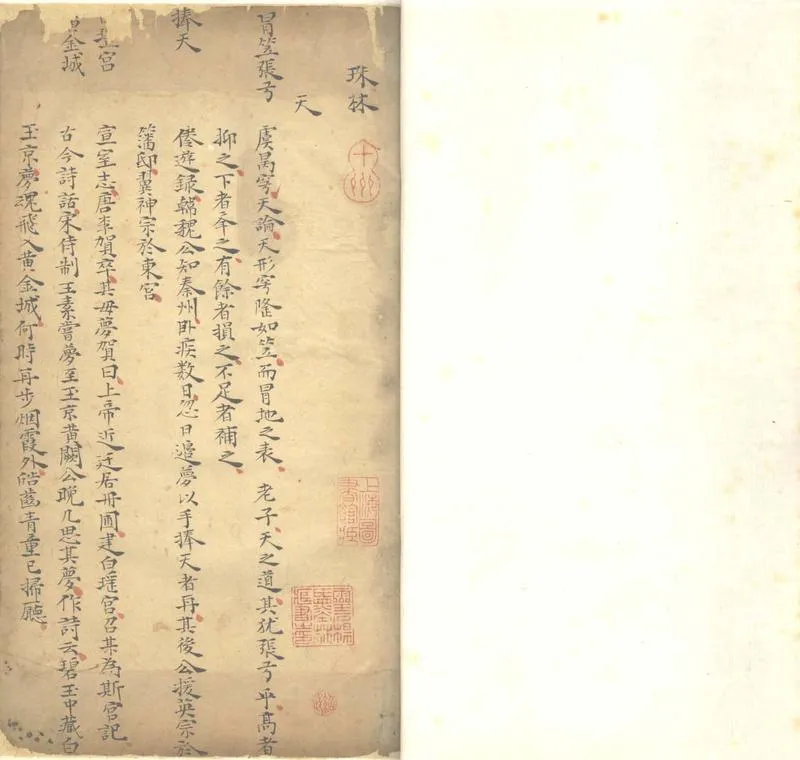 珠林
天
冒笠張弓
虞昺穹天論天形穹隆如笠而冒地之表 老子天之道其犹張弓乎高者
抑之下者夆之有餘者損之不足者補之
捧天
倦遊録韓魏公知秦州卧疾数日忽日邉夢以手捧天者再其後公援英宗於
藩邸翼神宗於東宫
宫
宣室志唐李賀卒其母夢賀曰上帝近迁居月圃建白瑶宫召某為斯宫記
金城
古今詩話宋侍制王素嘗夢至玉京黄闕公晚几思其夢作詩云碧玉中藏白
玉京夢魂飛入黄金城何時再步烟霞外皓齒青童已掃廳
十洲
上海圖書館藏